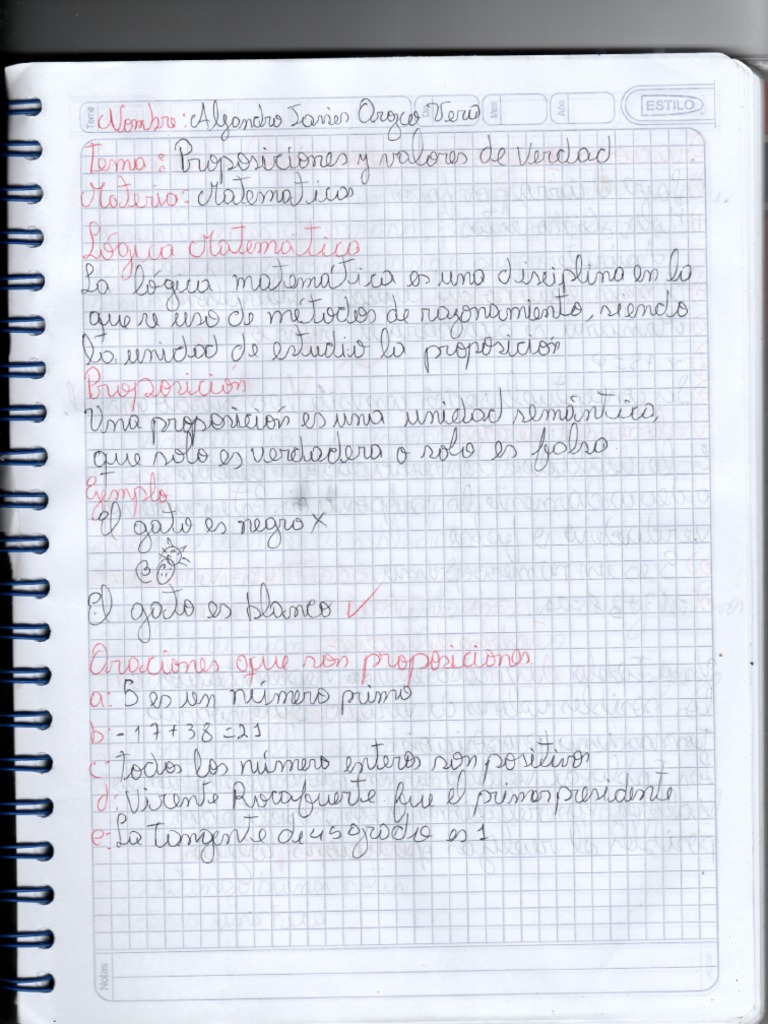 ESTILO
Nombre: Alejandro Javier Orozco Vera
Tema: Proposiciones y valores de verdad
Materia: Matematicas
Lógica Matemática
La lógica matemática es una disciplina en la
que se usa de métodos de razonamiento, siendo
la unidad de estudio la proposición
Proposición
Una proposición es una unidad semántica,
que solo es verdadera o solo es falsa.
Ejemplo
El gato es negro x
El gato es blanco ✓
Oraciones que son proposiciones
a: 5 es un número primo
b: -17+38=21
c: todos los número enteros son positivos
d: Vicente Rocafuerte fue el primer presidente
e: La tangente de 45 grados es 1
Notas